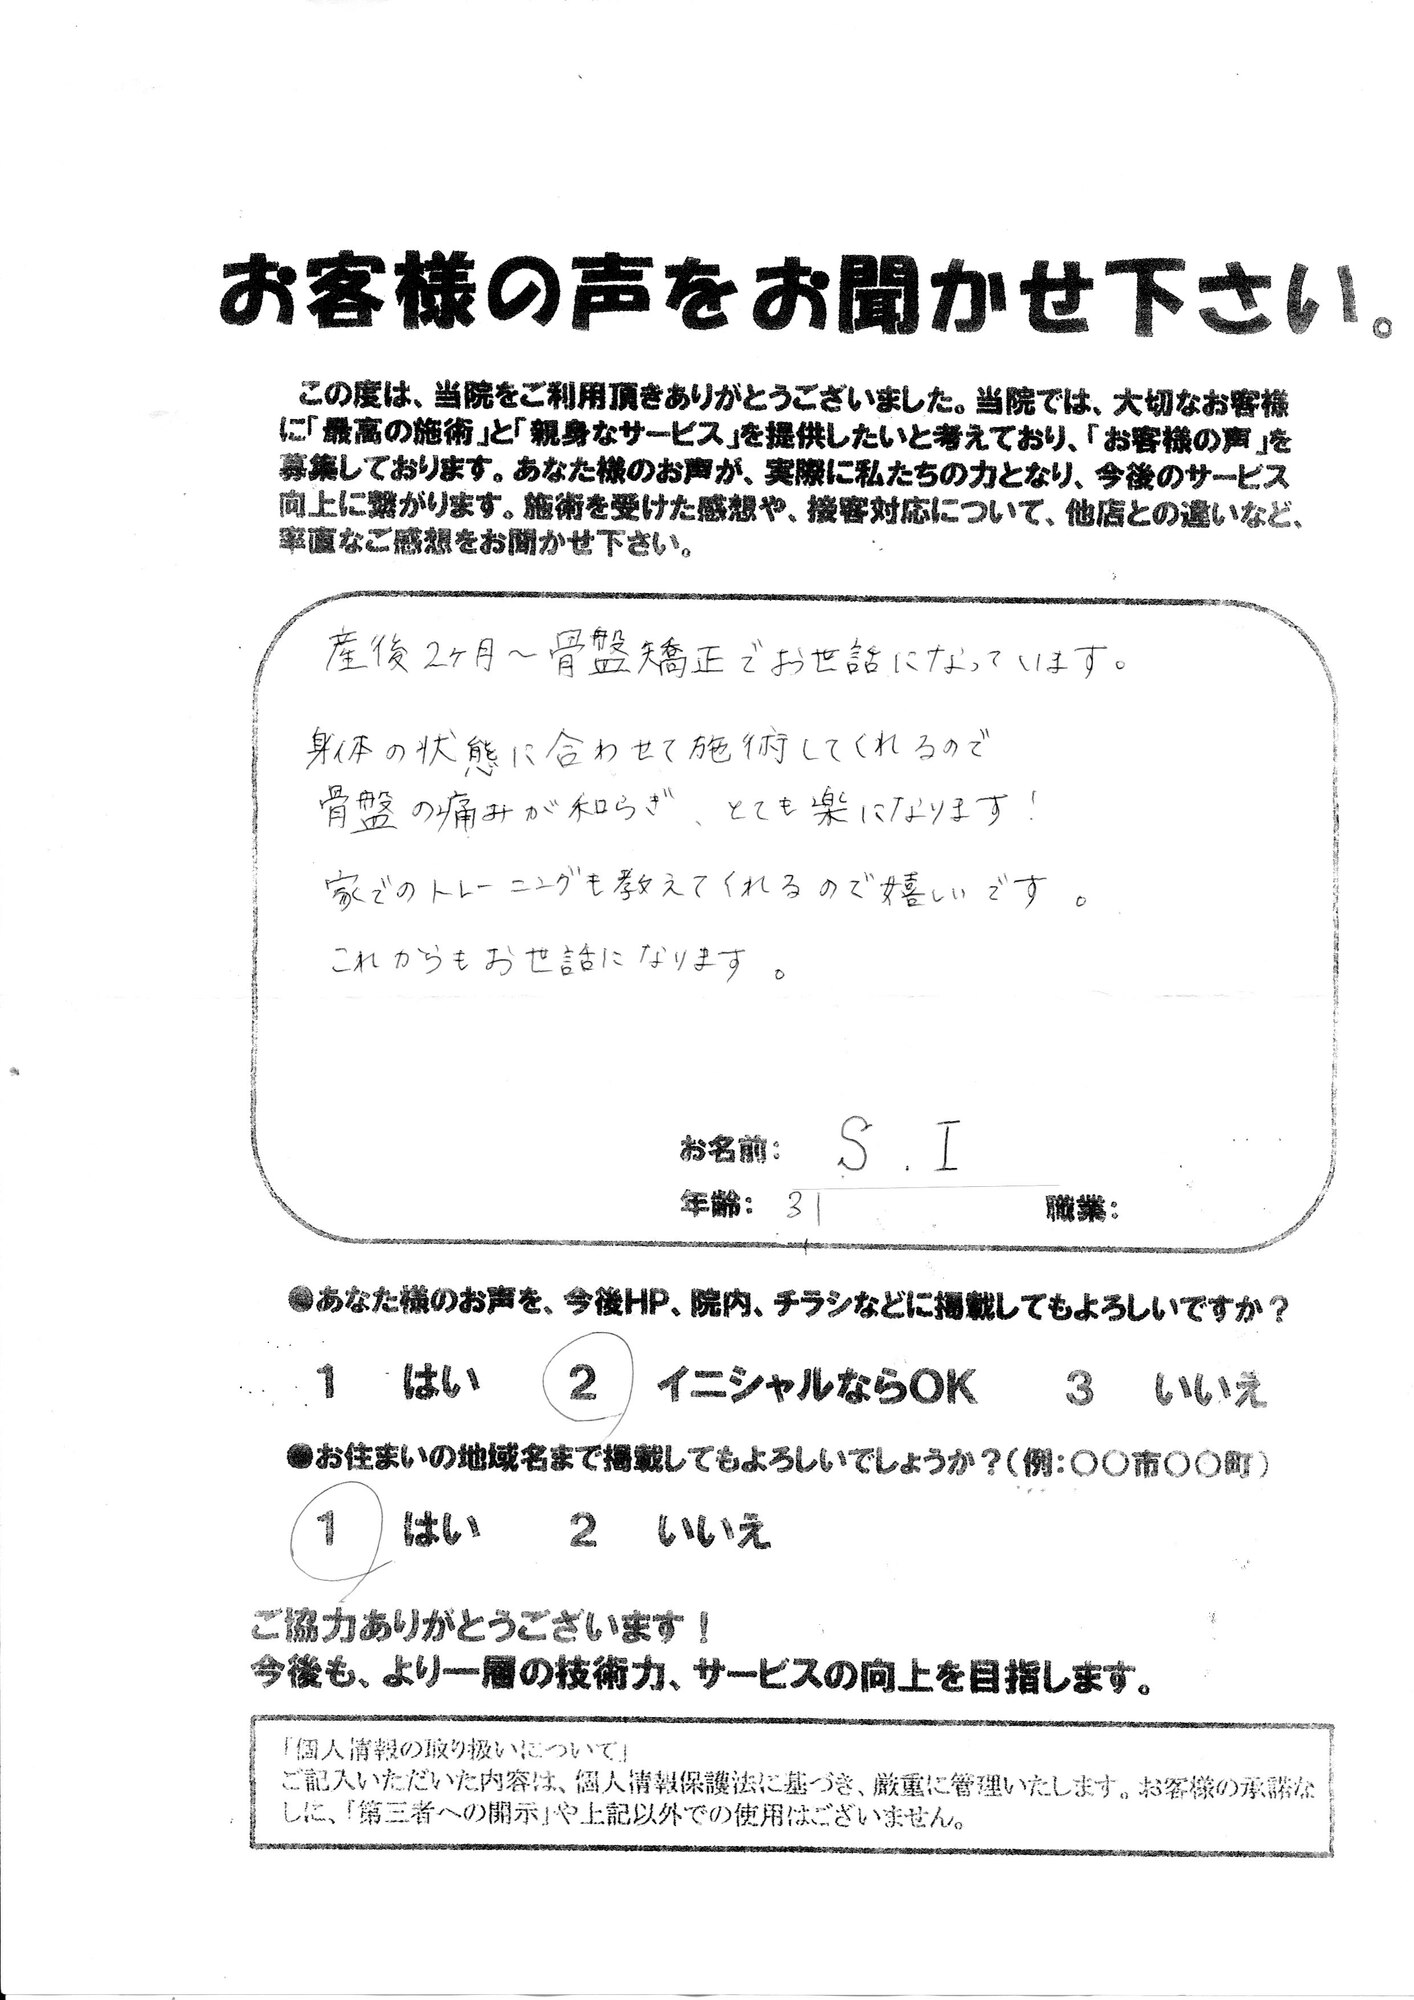 お客様の声をお聞かせ下さい。
この度は、当院をご利用頂きありがとうございました。当院では、大切なお客様
に「最高の施術」と「親身なサービス」を提供したいと考えており、「お客様の声」を
募集しております。あなた様のお声が、実際に私たちの力となり、今後のサービス
向上に繋がります。施術を受けた感想や、接客対応について、他店との違いなど、
率直なご感想をお聞かせ下さい。
産後2ヶ月～骨盤矯正でお世話になっています。
身体の状態に合わせて施術してくれるので
骨盤の痛みが和らぎ、とても楽になります！
家でのトレーニングも教えてくれるので嬉しいです。
これからもお世話になります。
お名前: S.I
年齢: 31 職業:
●あなた様のお声を、今後HP、院内、チラシなどに掲載してもよろしいですか？
1 はい 2 イニシャルならOK 3 いいえ
●お住まいの地域名まで掲載してもよろしいでしょうか？(例:〇〇市〇〇町)
1 はい 2 いいえ
ご協力ありがとうございます！
今後も、より一層の技術力、サービスの向上を目指します。
「個人情報の取り扱いについて」
ご記入いただいた内容は、個人情報保護法に基づき、厳重に管理いたします。お客様の承諾な
しに、「第三者への開示」や上記以外での使用はございません。